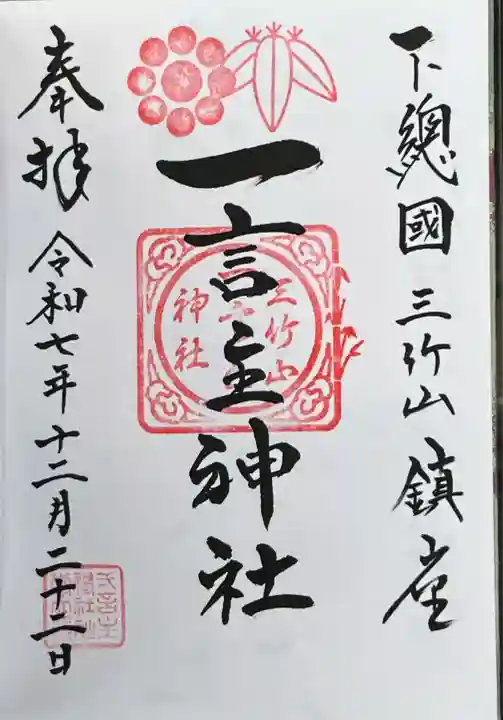 下總國 三竹山 鎮座
一言主神社
三竹山
神社
奉拝 令和七年十二月二十二日